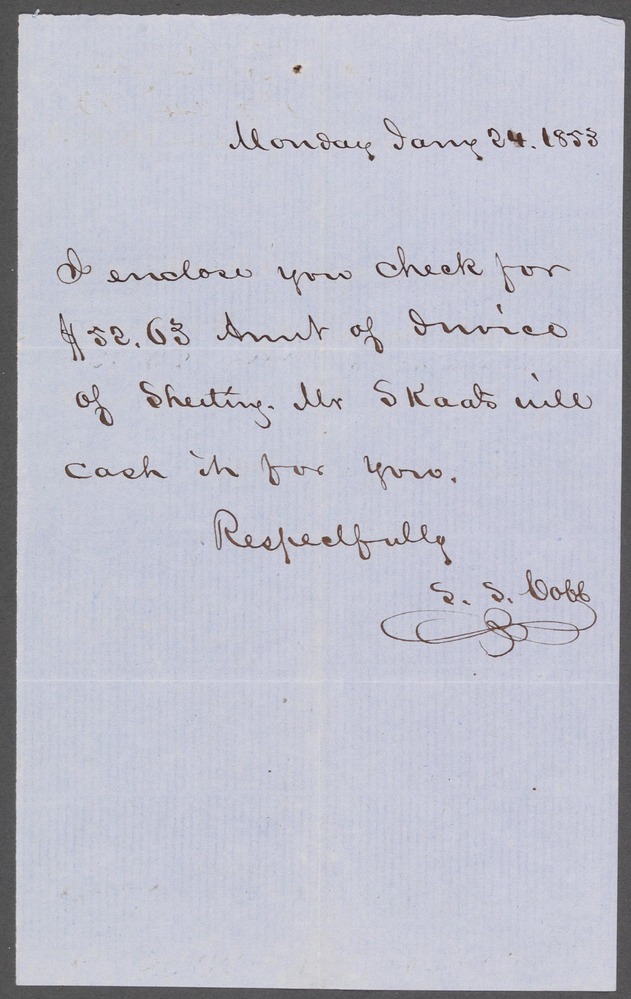 Monday Jany 24. 1853
I enclose you check for
$52.63 Amnt of Invoice
of Sheeting. Mr Skaats will
cash it for you.
Respectfully
S. S. Cobb